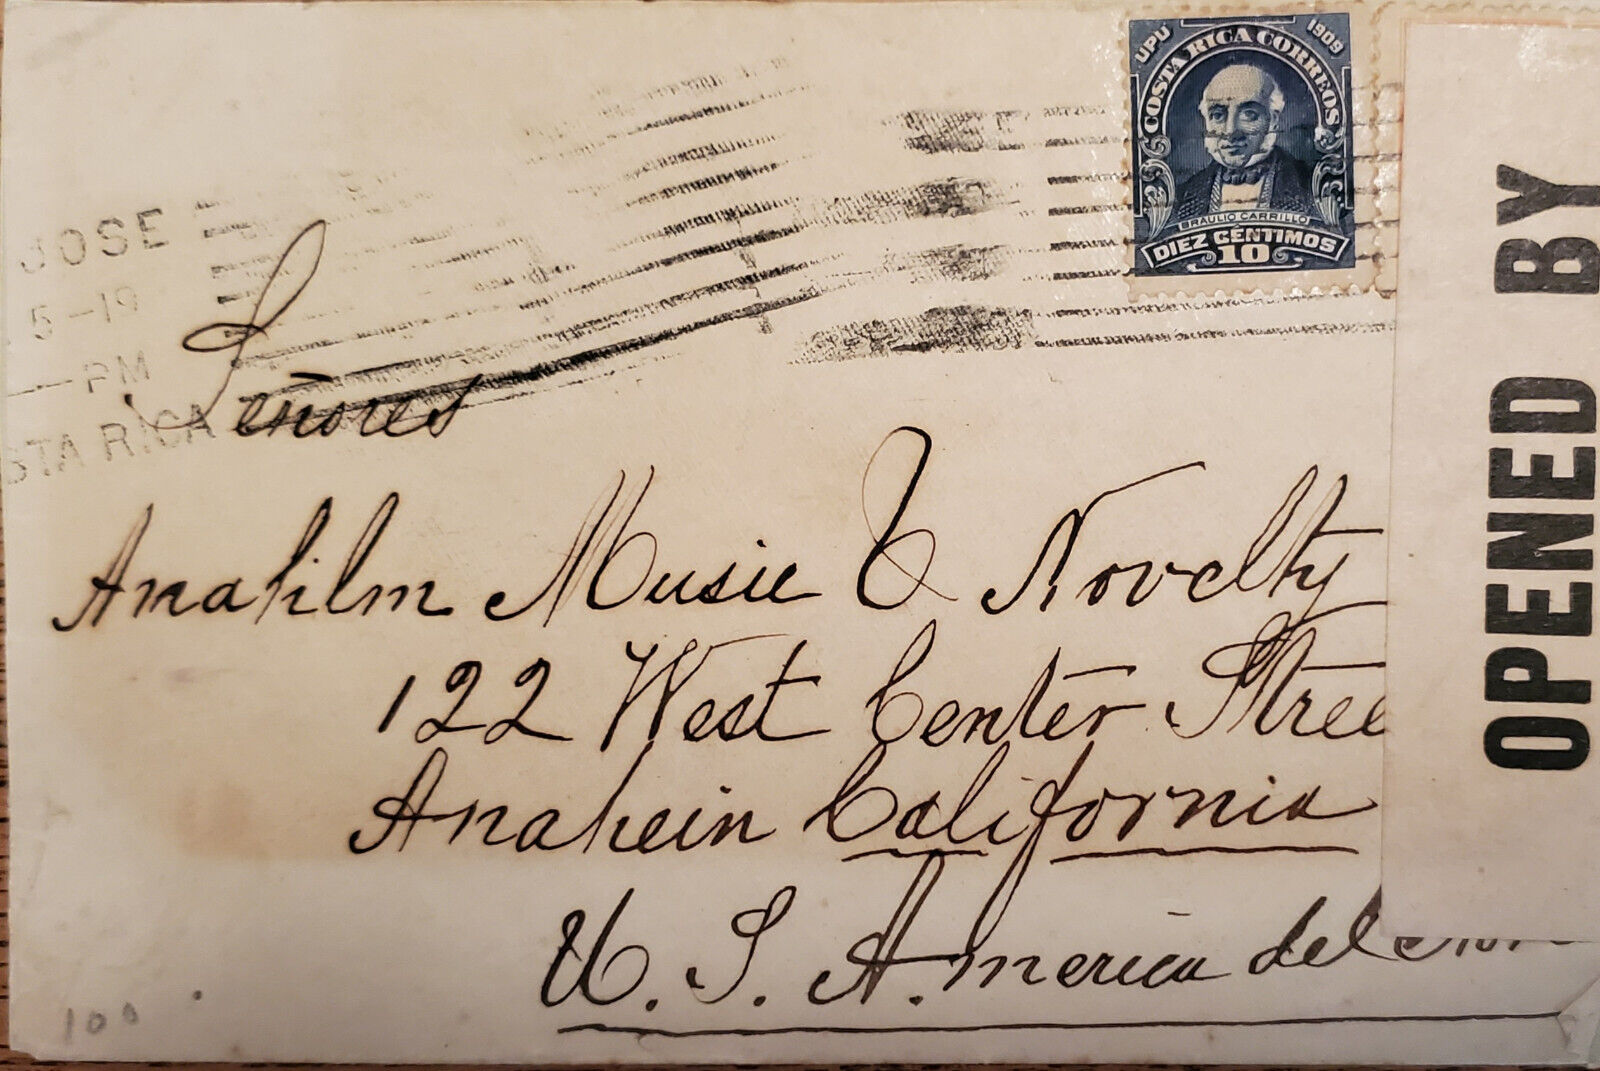 UPU 1909
COSTA RICA CORREOS
BRAULIO CARRILLO
DIEZ CÉNTIMOS
10
JOSE
5-19
PM
STA RICA
Señores
Anahilm Music & Novelty
122 West Center Stree
Anahein California
U. S. America del Nor
OPENED BY
100